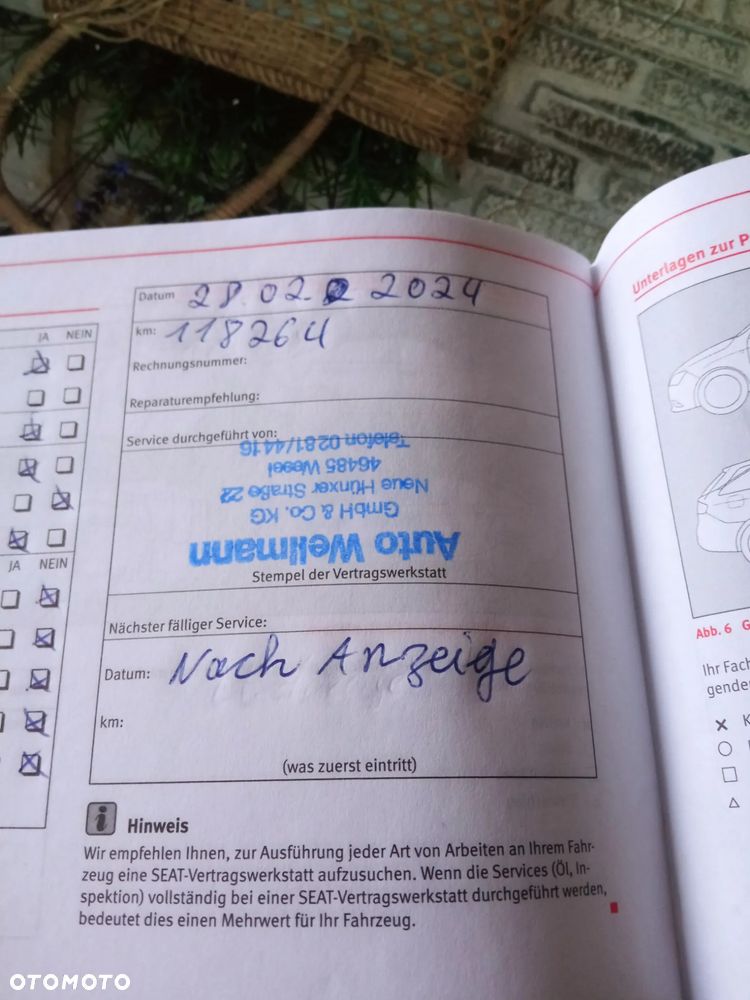 JA NEIN
JA NEIN
Datum 28.02 2024
km: 118264
Rechnungsnummer:
Reparaturempfehlung:
Service durchgeführt von:
Auto Wellmann
GmbH & Co. KG
Neue Hünxer Straße 22
46485 Wesel
Telefon 0281/4416
Stempel der Vertragswerkstatt
Nächster fälliger Service:
Datum: Nach Anzeige
km:
(was zuerst eintritt)
Hinweis
Wir empfehlen Ihnen, zur Ausführung jeder Art von Arbeiten an Ihrem Fahr-
zeug eine SEAT-Vertragswerkstatt aufzusuchen. Wenn die Services (Öl, In-
spektion) vollständig bei einer SEAT-Vertragswerkstatt durchgeführt werden,
bedeutet dies einen Mehrwert für Ihr Fahrzeug.
Unterlagen zur
Abb. 6
Ihr Fach
gende
OTOMOTO